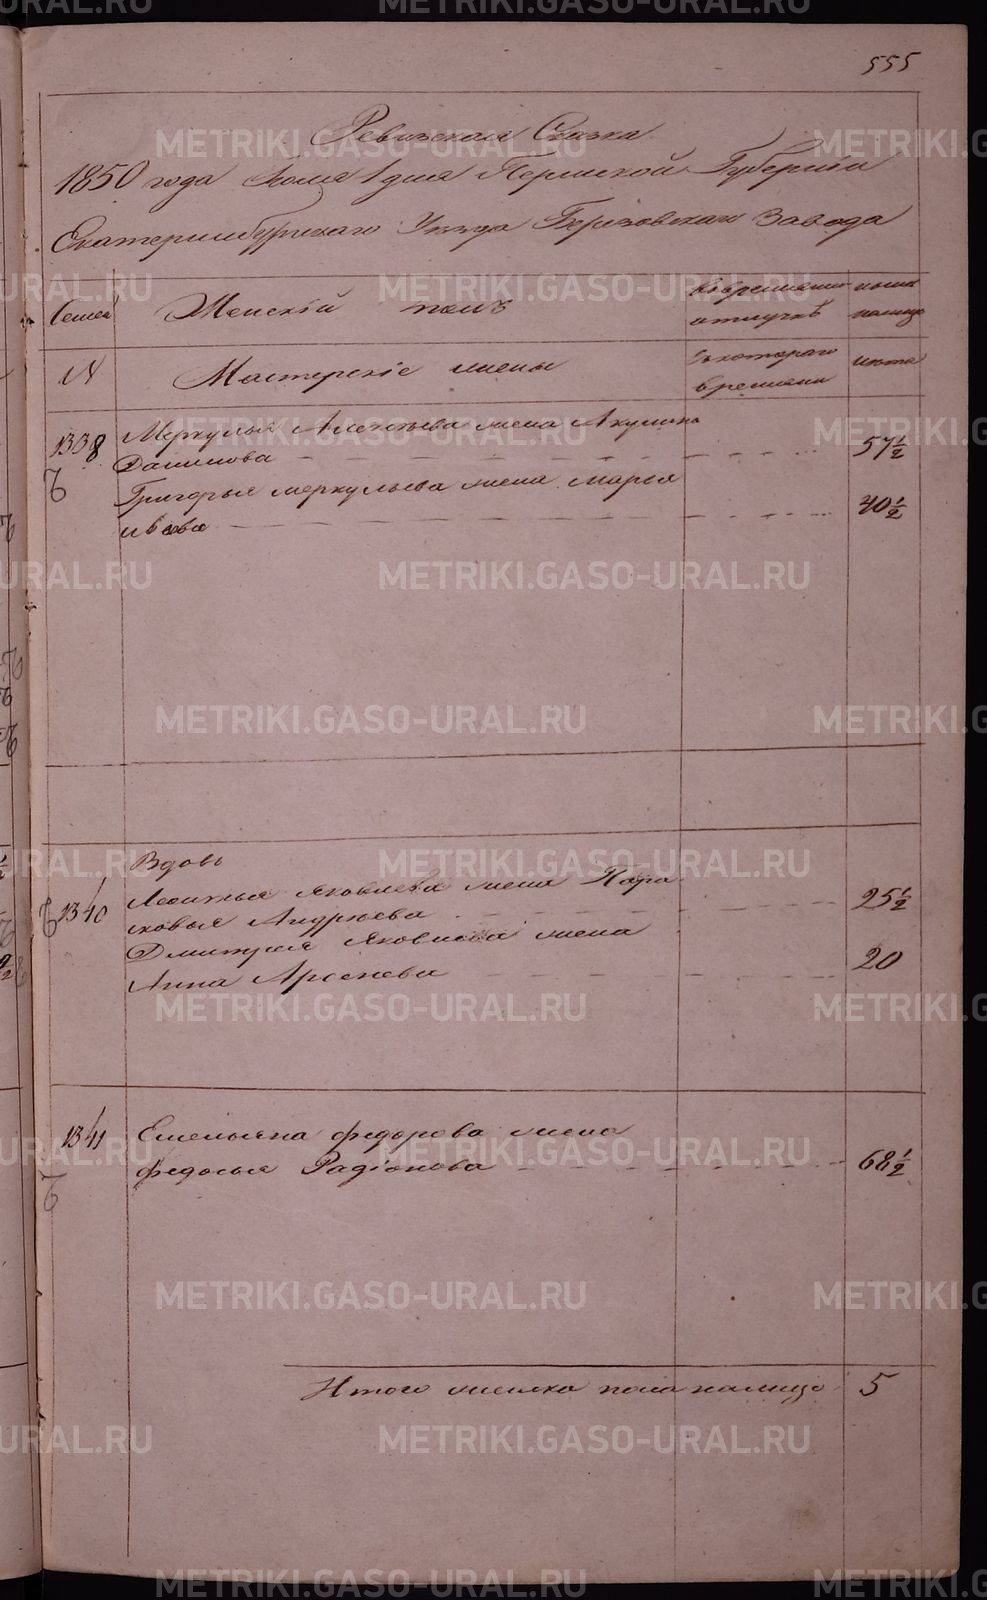 555
Ревизская Сказка
1850 года Июля 1 дня Пермской Губернiи
Екатеринбургскаго Уезда Березовскаго Завода
Семей Женскiй полъ во временной ныне
отлучке налицо
№ Мастерскiе жены съ котораго лета
времени
1338 Меркулья Алексеева жена Акулина
Данилова 57 1/2
Григорья Меркульева жена Марья
Ивова 40 1/2
Вдовы
1340 Леонтья Яковлева жена Пара
сковья Андреева 25 1/2
Дмитрия Яковлева жена
Анна Арсеньева 20
1341 Емельяна Федорова жена
Федосья Радiонова 68 1/2
Итого женска пола налицо 5
METRIKI.GASO-URAL.RU